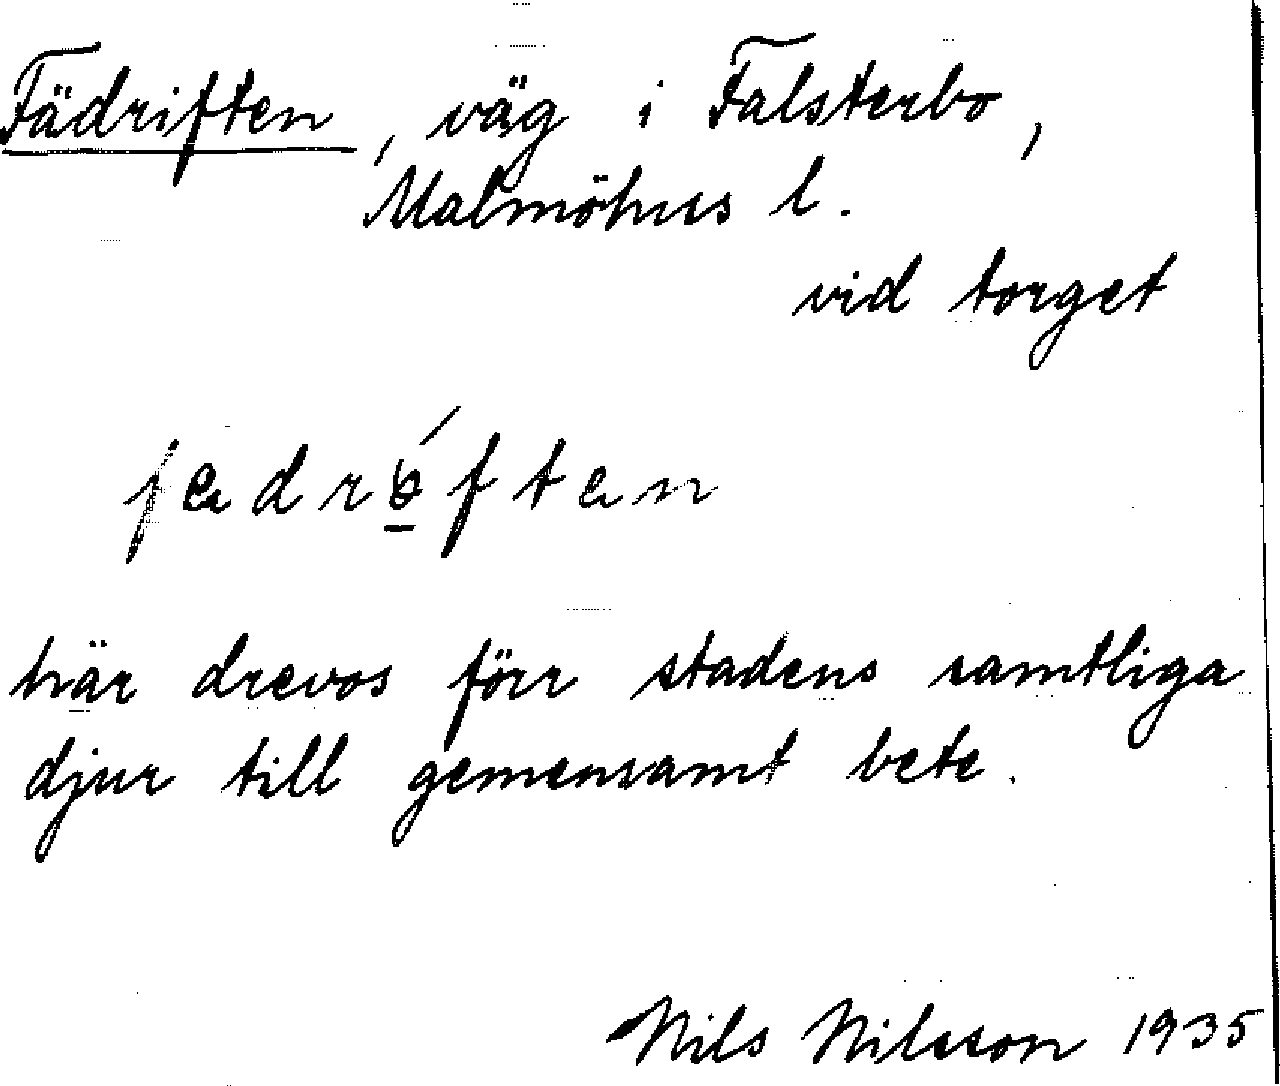 Fädriften, väg i Falsterbo,
Malmöhus l.
vid torget
här drevos förr stadens samtliga
djur till gemensamt bete.
Nils Nilsson 1935